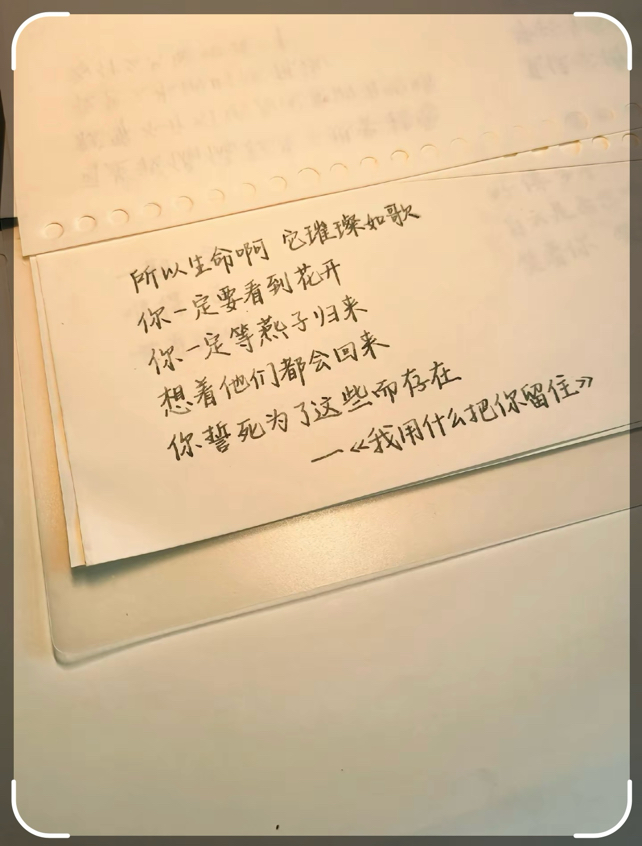 所以生命啊 它璀璨如歌
你一定要看到花开
你一定等燕子归来
想着他们都会回来
你誓死为了这些而存在
—《我用什么把你留住》